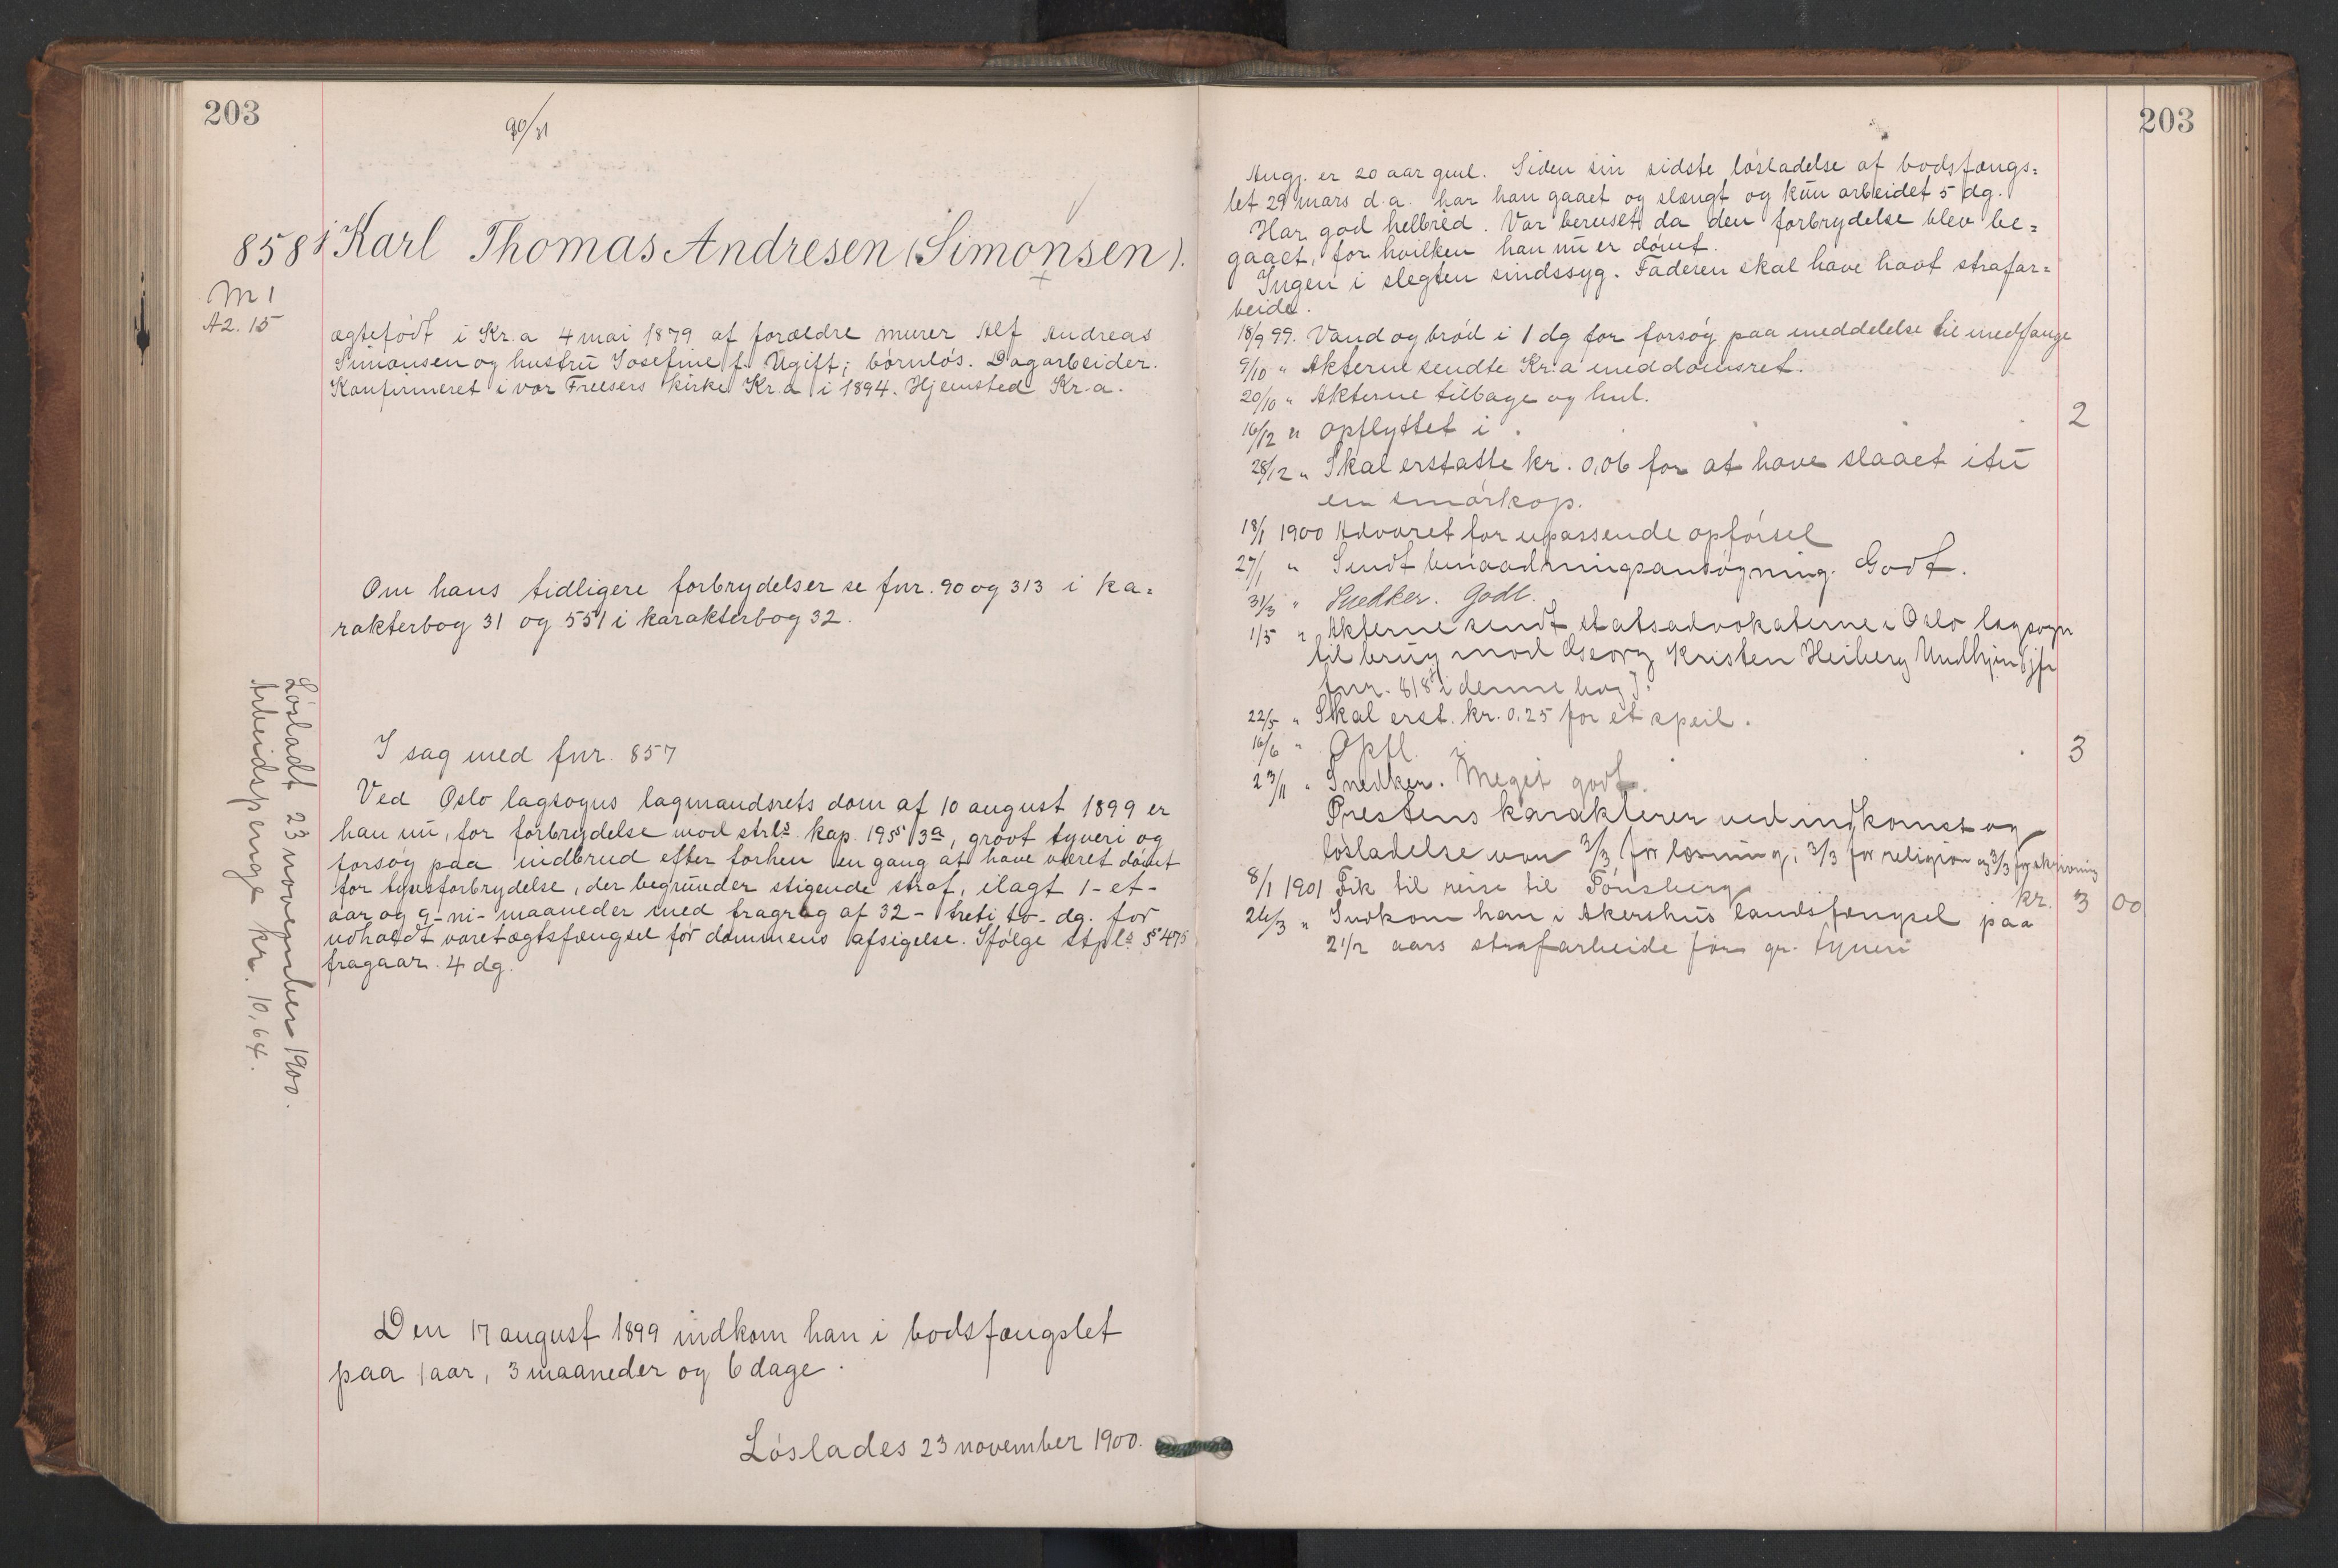 203
90/31
858
Karl Thomas Andresen (Simonsen).
M 1
A2. 15
ægtefødt i Kr.a 4 mai 1879 af forældre murer Alf Andreas
Simonsen og hustru Josefine f. Ugift; børnløs. Dagarbeider.
Konfirmeret i vor Frelsers kirke Kr.a i 1894. Hjemsted Kr.a.
Om hans tidligere forbrydelser se fnr. 90 og 313 i ka=
rakterbog 31 og 551 i karakterbog 32.
I sag med fnr. 857
Ved Oslo lagsogns lagmandsrets dom af 10 august 1899 er
han nu, for forbrydelse mod strls. kap. 19 § 3a, grovt tyveri og
forsøg paa indbrud efter forhen en gang at have været dømt
for tyvsforbrydelse, der begrunder stigende straf, ilagt 1-et-
aar og 9-ni-maaneder med fragrag af 32-treti to-dg. for
udholdt varetægtsfængsel før dommens afsigelse. Ifølge stpls. § 475
fragaar 4 dg.
Den 17 august 1899 indkom han i bodsfængslet
paa 1 aar, 3 maaneder og 6 dage.
Løslades 23 november 1900.
Løsladt 23 november 1900.
Arbeidspenge kr. 10,64.
203
Angj. er 20 aar gml. Siden sin sidste løsladelse af bodsfængs=
let 29 mars d.a. har han gaaet og slængt og kun arbeidet 5 dg.
Har god helbred. Var beruset da den forbrydelse blev be=
gaaet, for hvilken han nu er dømt.
Ingen i slegten sindssyg. Faderen skal have havt strafar=
beide.
18/9 99. Vand og brød i 1 dg for forsøg paa meddelelse til medfange
9/10 " Akterne sendte Kr.a meddomsret.
20/10 " Akterne tilbage og hnl.
16/12 " opflyttet i . 2
28/12 " Skal erstatte kr. 0,06 for at have slaaet itu
en smørkop.
18/1 1900 Advaret for upassende opførsel
27/1 " Sendt benaadningsansøgning. Godt.
31/3 " Snedker. Godt.
1/5 " Akterne sendt statsadvokaterne i Oslo lagsogn
til brug mod Georg Kristen Heiberg Undhjem [jfr
fnr. 818 i denne bog].
22/5 " Skal erst. kr. 0.25 for et speil.
16/6 " Opfl. i . 3
23/11 " Snedker. Meget godt.
Prestens karakterer ved indkomst og
løsladelse var 3/3 for læsning, 3/3 for religion og 3/3 for skrivning
8/1 1901 Fik til reise til Tønsberg kr. 3 00
26/3 " Indkom han i Akershus landsfængsel paa
2 1/2 aars strafarbeide for gr. tyveri